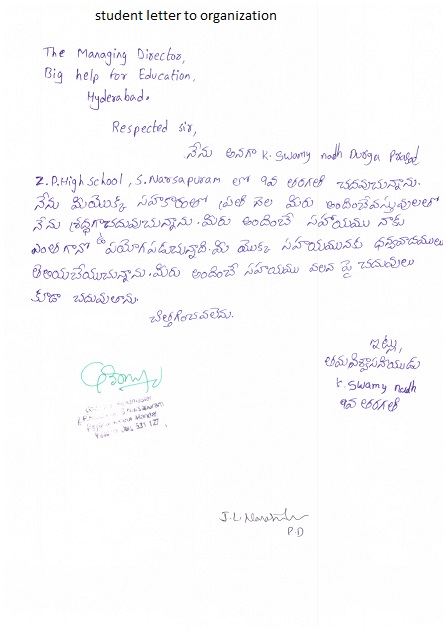 student letter to organization
The Managing Director,
Big help for Education,
Hyderabad.
Respected sir,
నేను అనగా K. Swamy nadh Durga Prasad
Z.P.High school, S. Narsapuram లో 9వ తరగతి చదువుచున్నాను.
నేను మీయొక్క సహకారంతో ప్రతి నెల మీరు అందించేవస్తువులతో
నేను శ్రద్ధగాచదువుచున్నాను. మీరు అందించే సహాయము నాకు
ఎంతగానో ఉపయోగపడుచున్నాది. మీ యొక్క సహాయమునకు ధన్యవాదములు
తెలియచేయుచున్నాను. మీరు అందించే సహయము వలన పై చదువులు
కూడా చదువుతాను.
చిత్తగించవలెను.
ఇట్లు,
తమవిశ్వాసనీయుడు
K. Swamy nadh
9వ తరగతి
P.D